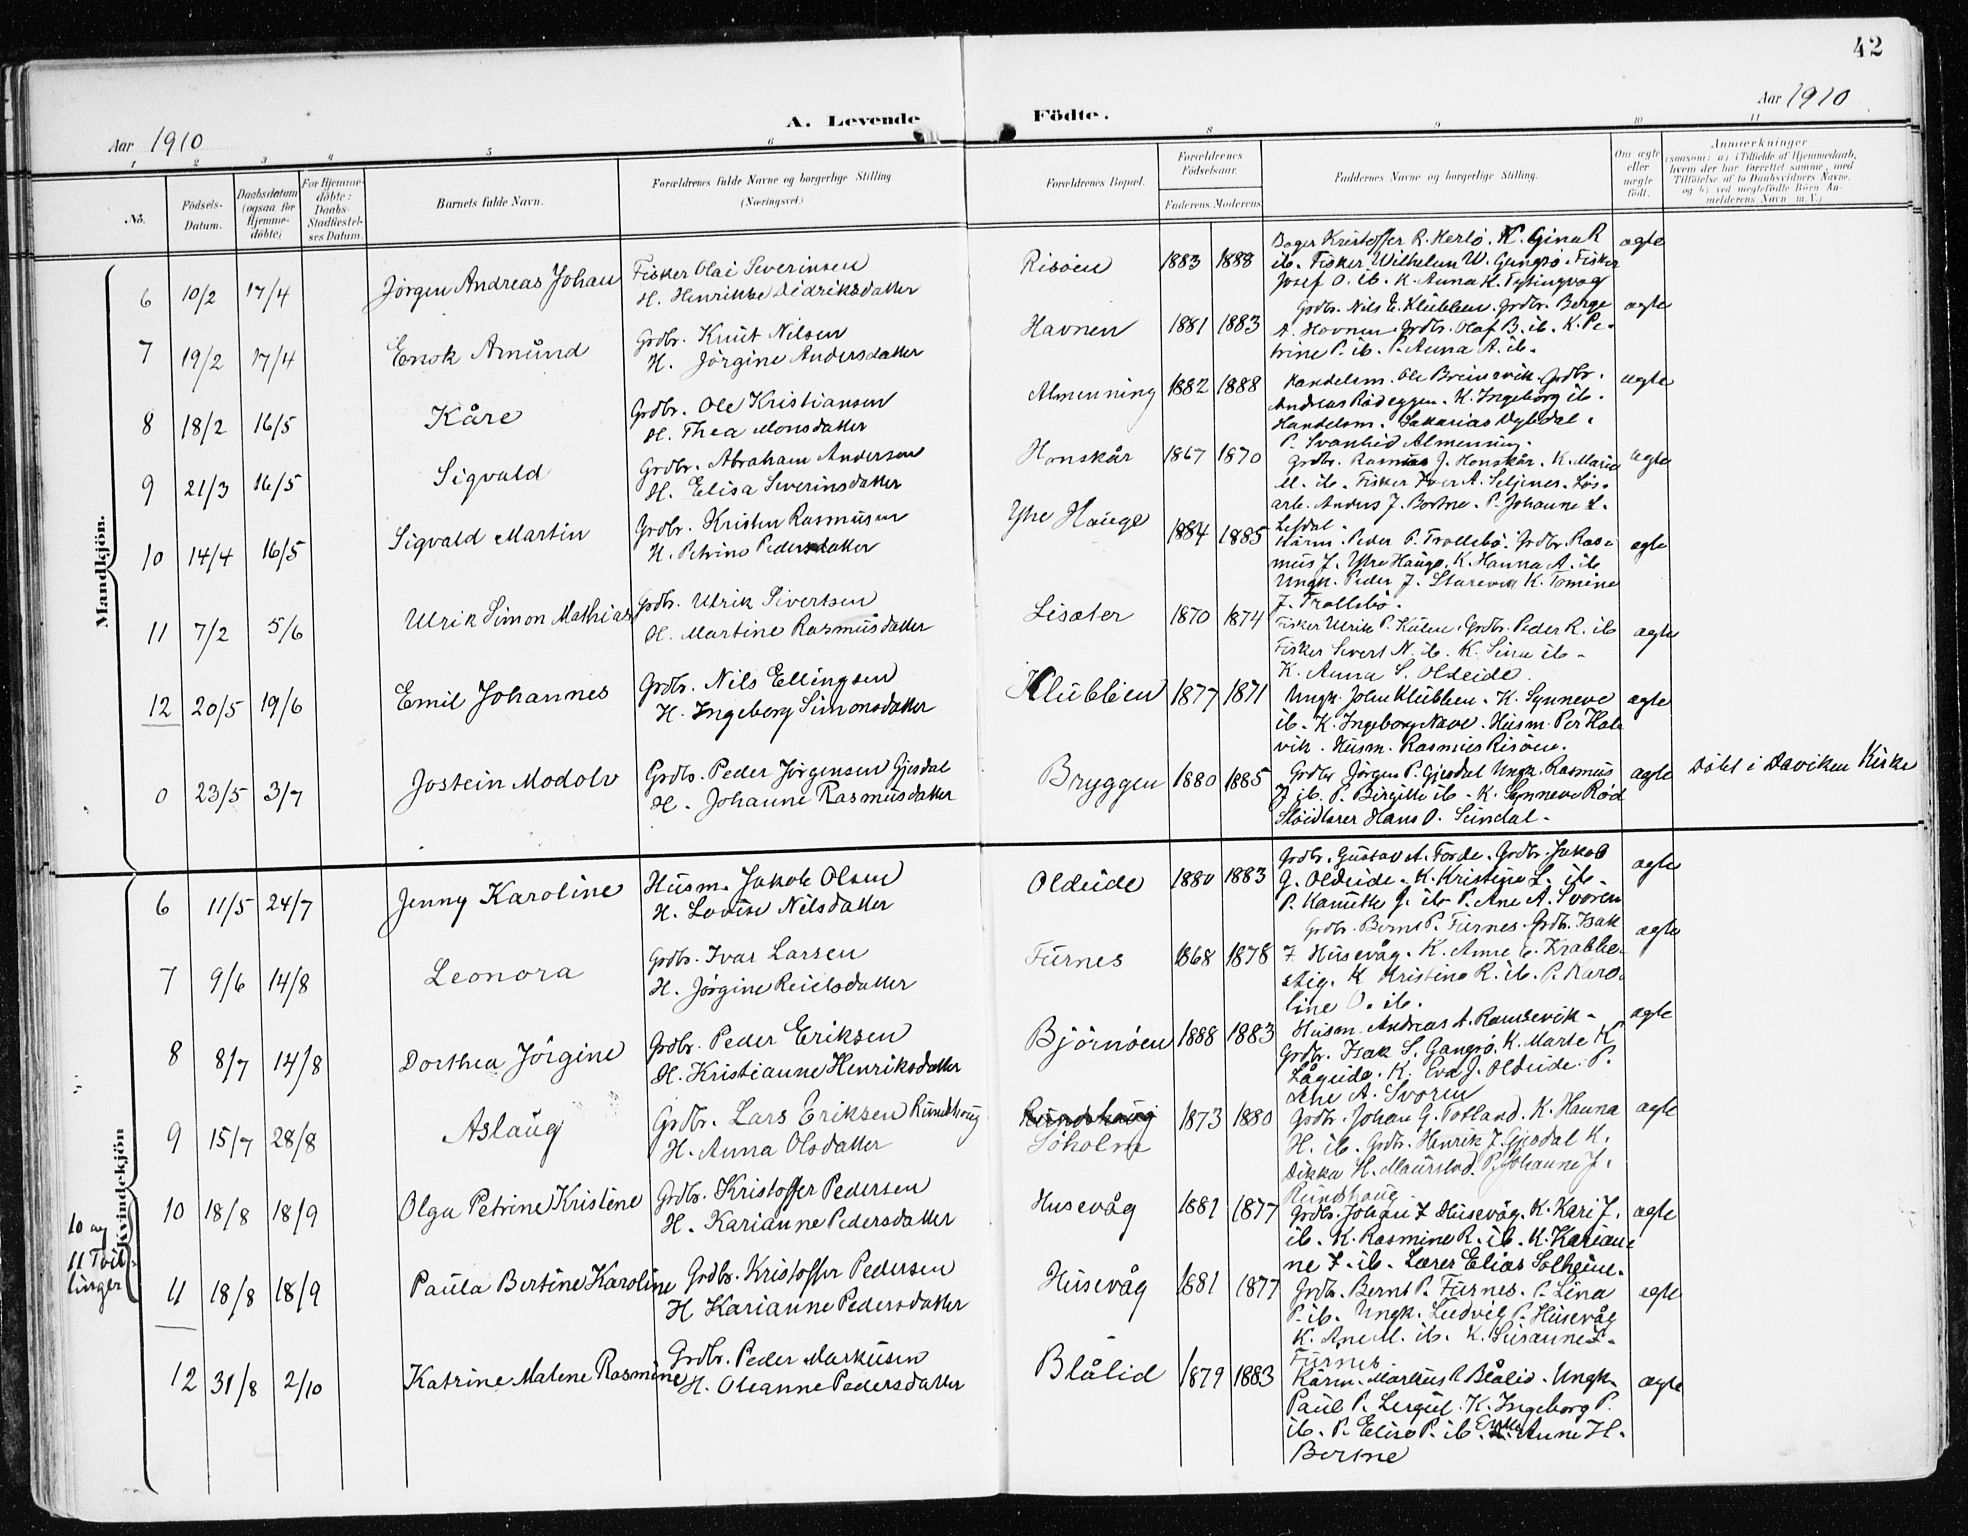 42
Aar 1910
A. Levende Födte.
Aar 1910
1 2 3 4 5 6 8 9 10 11
No.
Födsels-Datum.
Daabsdatum (ogsaa for Hjemme-döbte)
For Hjemme-döbte: Daabs-Stadfæstel-ses Datum.
Barnets fulde Navn.
Forældrenes fulde Navne og borgerlige Stilling.
(Næringsvei.)
Forældrenes Bopæl.
Forældrenes Födselsaar.
Faderens. Moderens.
Faddernes Navne og borgerlige Stilling.
Om ægte eller uægte födt.
Anmærkninger
(saasom: a) i Tilfælde af Hjemmedaab, hvem der har forrettet samme, med Tilföielse af to Daabsvidners Navne, og b) ved uægtefödte Börn An-melderens Navn m.V.)
Mandkjön.
6 10/2 17/4 Jörgen Andreas Johan
Fisker Olai Severinsen
H. Henrikke Didriksdatter
Risöen 1883 1888
Kristoffer R. Herlö. K. Gina R
ib. Fisker Wilhelm W. Gangsö. Fisker
Josef O. ib. K. Anna K. Tytingvag
ægte
7 19/2 17/4 Enok Amund
Grdbr. Knut Nilsen
H. Jörgine Andersdatter
Havnen 1881 1883
Grdbr. Nils E. Klubben. Grdbr. Berge
A. Havnen. Grdbr. Olaf B. ib. K. Pe-
trine P. ib. P. Anna A. ib.
ægte
8 18/2 16/5 Kåre
Grdbr. Ole Kristiansen
H. Thea Monsdatter
Almenning 1882 1888
Handelsm. Ole Breinsvik. Grdbr.
Andreas Rödeggen. K. Ingeborg ib.
Handelsm. Sakarias Dybedal.
P. Svanhild Almenning.
ægte
9 21/3 16/5 Sigvald
Grdbr. Abraham Andersen
H. Elisa Severinsdatter
Honskår 1867 1870
Grdbr. Rasmus J. Honskår. K. Maria
M. ib. Fisker Iver A. Seljenes. Lös-
arb. Anders J. Bortne. P. Johanne L.
Lefdal.
ægte
10 14/4 16/5 Sigvald Martin
Grdbr. Kristen Rasmusen
H. Petrine Pedersdatter
Ytre Hauge 1884 1885
Kårm. Peder P. Trollebö. Grdbr. Ras-
mus J. Ytre Hauge. K. Hanna A. ib
Ungk. Peder J. Starevik K. Tomine
J. Trollebö.
ægte
11 7/2 5/6 Ulrik Simon Mathias
Grdbr. Ulrik Sivertsen
H. Martine Rasmusdatter
Lisæter 1870 1874
Fisker Ulrik P. Hülen. Grdbr. Peder R. ib
Fisker Sivert N. ib. K. Sina ib.
K. Anna S. Oldeide.
ægte
12 20/5 19/6 Emil Johannes
Grdbr. Nils Ellingsen
H. Ingeborg Simonsdatter
Klubben 1877 1871
Ungk. John Klubben. K. Synneve
ib. K. Ingeborg Nave. Husm. Per Hals-
vik. Husm. Rasmus Risöen.
ægte
0 23/5 3/7 Jostein Modolv
Grdbr. Peder Jörgensen Gjesdal
H. Johanne Rasmusdatter
Bryggen 1880 1885
Grdbr Jörgen P. Gjesdal Ungk. Rasmus
J ib. P. Birgitte ib. K. Synneve Röd
Slöidlærer Hans O. Seindal.
ægte Döbt i Daviken Kirke
Kvindekjön
6 11/5 24/7 Jenny Karoline
Husm. Jakob Olsen
H. Lovise Nilsdatter
Oldeide 1880 1883
Grdbr. Gustav A. Förde. Grdbr. Jakob
G. Oldeide. K. Kristine L. ib.
P. Kamitte J. ib P. Ane A. Svoren
ægte
7 9/6 14/8 Leonora
Grdbr. Ivar Larsen
H. Jörgine Reielsdatter
Furnes 1868 1878
Grdbr. Bernt P. Furnes. Grdbr. Isak
J. Husevåg. K. Anne E. Krabbe-
stig. K Kristine R. ib. P. Karo-
line O. ib.
ægte
8 8/7 14/8 Dorthea Jörgine
Grdbr. Peder Eriksen
H. Kristianne Henriksdatter
Björnöen 1888 1883
Husm. Andreas A. Ramsevik.
Grdbr. Isak S. Gangsö. K. Marte K.
Lågeide. K. Eva J. Oldeide. P.
Ane A. Svoren
ægte
9 15/7 28/8 Aslaug
Grdbr. Lars Eriksen Rundhoug
H. Anna Olsdatter
Rundhoug
Söholm 1873 1880
Grdbr. Johan G. Totland. K. Hanna
H. ib. Grdbr. Henrik J. Gjesdal K.
Dikka H. Maurstad. P. Johanne J.
Rundhoug
ægte
10 18/8 18/9 Olga Petrine Kristine
Grdbr. Kristoffer Pedersen
H. Karianne Pedersdatter
Husevåg 1881 1877
Grdbr. Johan J Husevåg. K. Kari J.
ib. K. Rasmine R. ib. K. Karian-
ne J. ib. Lærer Elias Solheim.
ægte
10 og
11 Tvil-
linger
11 18/8 18/9 Paula Bertine Karoline
Grdbr. Kristoffer Pedersen
H Karianne Pedersdatter
Husevåg 1881 1877
Grdbr. Bernt P. Furnes. P. Lina
P. ib. Ungk. Ludvig P. Husevåg
K. Ane M. ib. K. Susanne L.
Furnes
ægte
12 31/8 2/10 Katrine Malene Rasmine
Grdbr. Peder Markusen
H. Oleanne Pedersdatter
Blålid 1879 1883
Kårm. Markus R Blålid. Ungk.
Paul P. Lergul. K. Ingeborg P.
ib. P. Elise P. ib. Enke Anne H.
Bortne
ægte